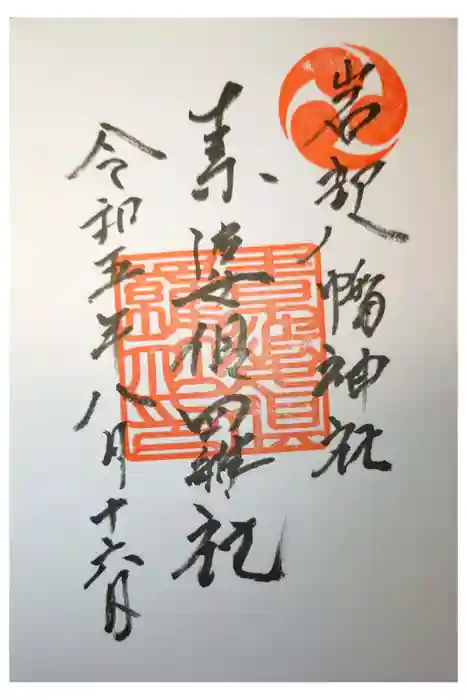 岩部八幡神社
素婆倶羅社
令和五年八月十六日